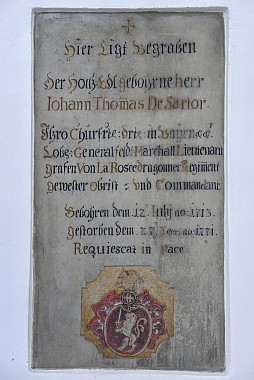 Hier Ligt Begraben
Der Hoch Edl gebohrne herr
Johann Thomas De Sarior.
Ihro Churfrtl: drt: in
Lobg: General feld Marchall Lieutenant
grafen Von La Rosee dragonner Regiment
gewester Obrist : und Commandant
Gebohren dem 12. July ao: 1713.
gestorben dem 27. ao: 1771.
Requiescat in Pace